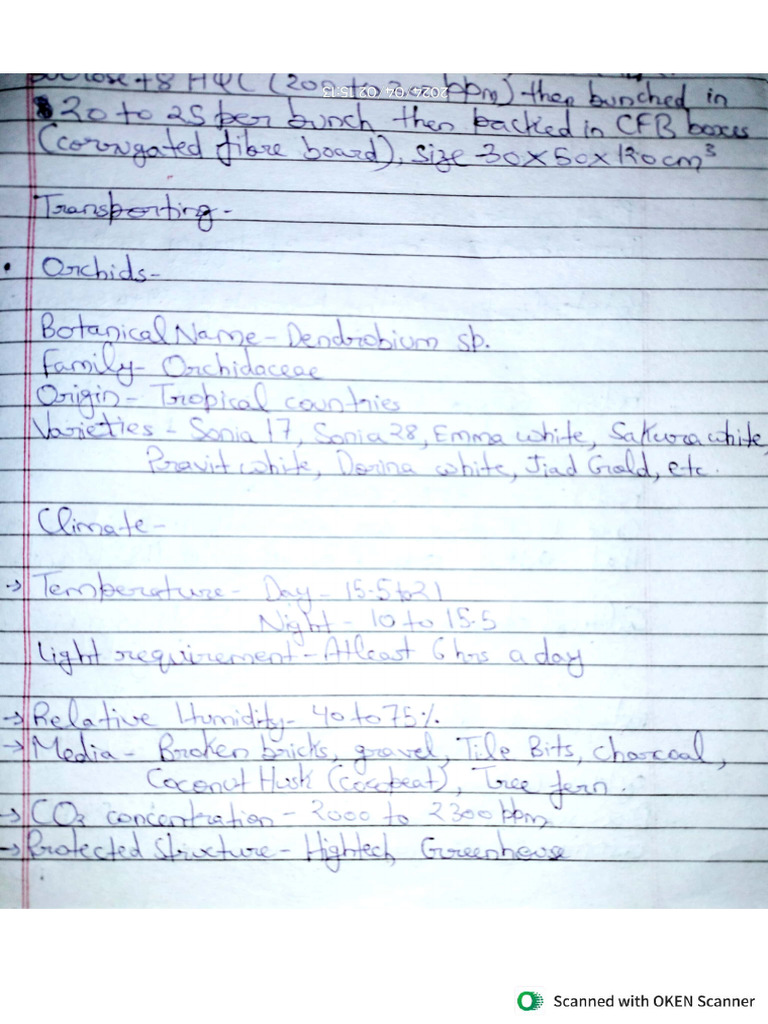 sucrose + 8 HQC (200 to ppm) then bunched in
20 to 25 per bunch then packed in CFB boxes
(corrugated fibre board), size - 30 x 50 x 130 cm³
Transporting -
• Orchids -
Botanical Name - Dendrobium sp.
Family - Orchidaceae
Origin - Tropical countries
Varieties - Sonia 17, Sonia 28, Emma white, Sakura white,
Pravit white, Dorina white, Jiad Gold, etc.
Climate -
→ Temperature - Day - 15.5 to 21
Night - 10 to 15.5
Light requirement - Atleast 6 hrs a day
→ Relative Humidity - 40 to 75%
→ Media - Broken bricks, gravel, Tile Bits, charcoal,
Coconut Husk (cocopeat), Tree fern.
→ CO₂ concentration - 2000 to 2300 ppm
→ Protected Structure - Hightech Greenhouse
2024/04/02 15:13
Scanned with OKEN Scanner